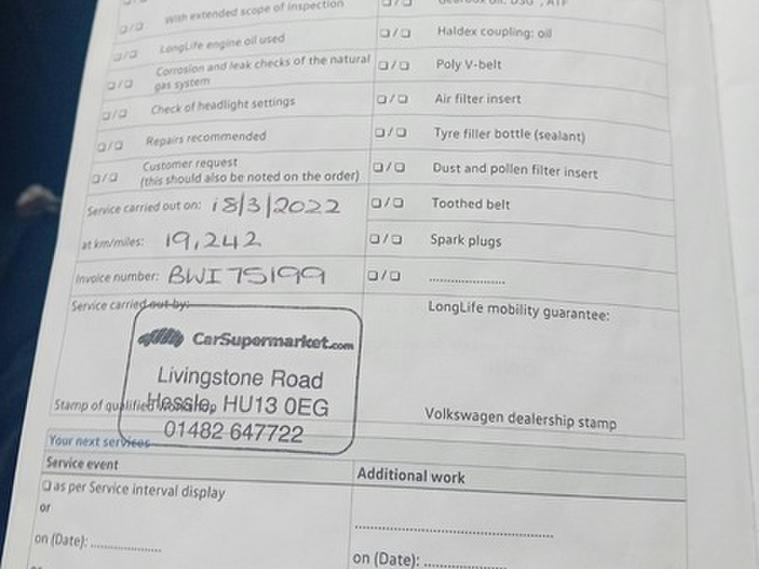 With extended scope of inspection
LongLife engine oil used
Corrosion and leak checks of the natural
gas system
Check of headlight settings
Repairs recommended
Customer request
(this should also be noted on the order)
Service carried out on: 18/3/2022
at km/miles: 19,242
Invoice number: BWI 75199
Service carried out by:
CarSupermarket.com
Livingstone Road
Hessle, HU13 0EG
01482 647722
Stamp of qualified workshop
Haldex coupling: oil
Poly V-belt
Air filter insert
Tyre filler bottle (sealant)
Dust and pollen filter insert
Toothed belt
Spark plugs
....................
LongLife mobility guarantee:
Volkswagen dealership stamp
Your next services
Service event
as per Service interval display
or
on (Date): ..................
Additional work
..................................................
on (Date): .....................